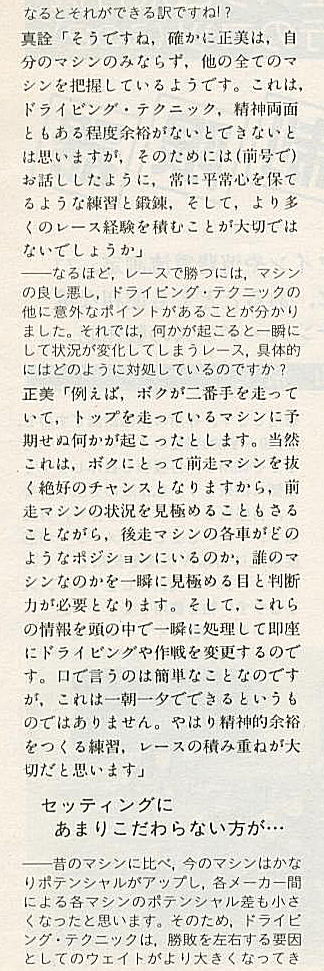 なるとそれができる訳ですね!?
真詮「そうですね，確かに正美は，自
分のマシンのみならず，他の全てのマ
シンを把握しているようです。これは，
ドライビング・テクニック，精神両面
ともある程度余裕がないとできないと
は思いますが，そのためには(前号で)
お話ししたように，常に平常心を保て
るような練習と鍛錬，そして，より多
くのレース経験を積むことが大切では
ないでしょうか」
――なるほど，レースで勝つには，マシン
の良し悪し，ドライビング・テクニックの
他に意外なポイントがあることが分かり
ました。それでは，何かが起こると一瞬に
して状況が変化してしまうレース，具体的
にはどのように対処しているのですか？
正美「例えば，ボクが二番手を走って
いて，トップを走っているマシンに予
期せぬ何かが起こったとします。当然
これは，ボクにとって前走マシンを抜
く絶好のチャンスとなりますから，前
走マシンの状況を見極めることもさる
ことながら，後走マシンの各車がどの
ようなポジションにいるのか，誰のマ
シンなのかを一瞬に見極める目と判断
力が必要となります。そして，これら
の情報を頭の中で一瞬に処理して即座
にドライビングや作戦を変更するので
す。口で言うのは簡単なことなのです
が，これは一朝一夕でできるというも
のではありません。やはり精神的余裕
をつくる練習，レースの積み重ねが大
切だと思います」
セッティングに
あまりこだわらない方が…
――昔のマシンに比べ，今のマシンはかな
りポテンシャルがアップし，各メーカー間
による各マシンのポテンシャル差も小さ
くなったと思います。そのため，ドライビ
ング・テクニックは，勝敗を左右する要因
としてのウェイトがより大きくなってき